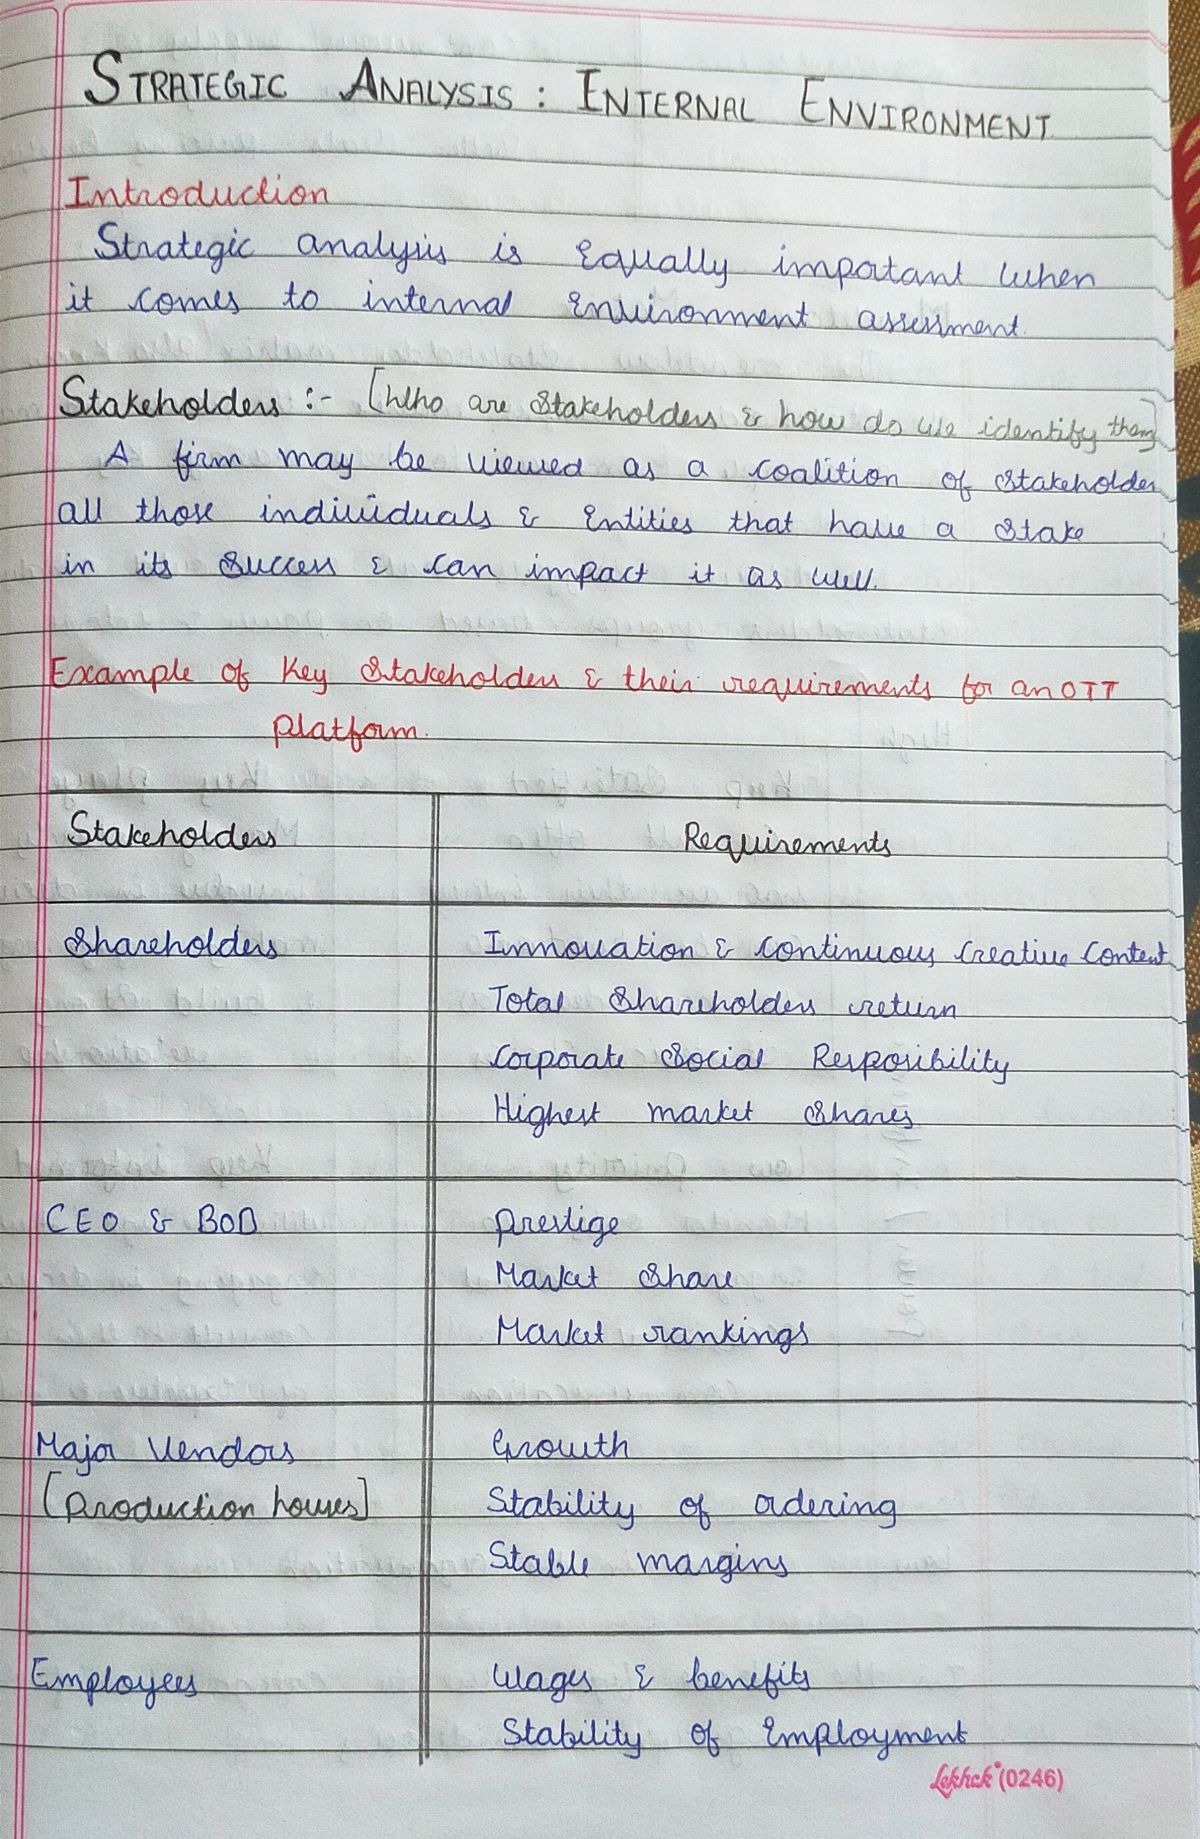 STRATEGIC ANALYSIS : INTERNAL ENVIRONMENT
Introduction
Strategic analysis is equally important when
it comes to internal environment assessment.
Stakeholders :- [Who are stakeholders & how do we identify them]
A firm may be viewed as a coalition of stakeholder
all those individuals & entities that have a stake
in its success & can impact it as well.
Example of key stakeholders & their requirements for an OTT
platform.
Stakeholders Requirements
Shareholders Innovation & continuous creative content
Total shareholders return
Corporate Social Resposibility
Highest market shares
CEO & BOD Prestige
Market share
Market rankings
Major Vendors Growth
[Production houses] Stability of ordering
Stable margins
Employees Wages & benefits
Stability of employment
Lekhak (0246)